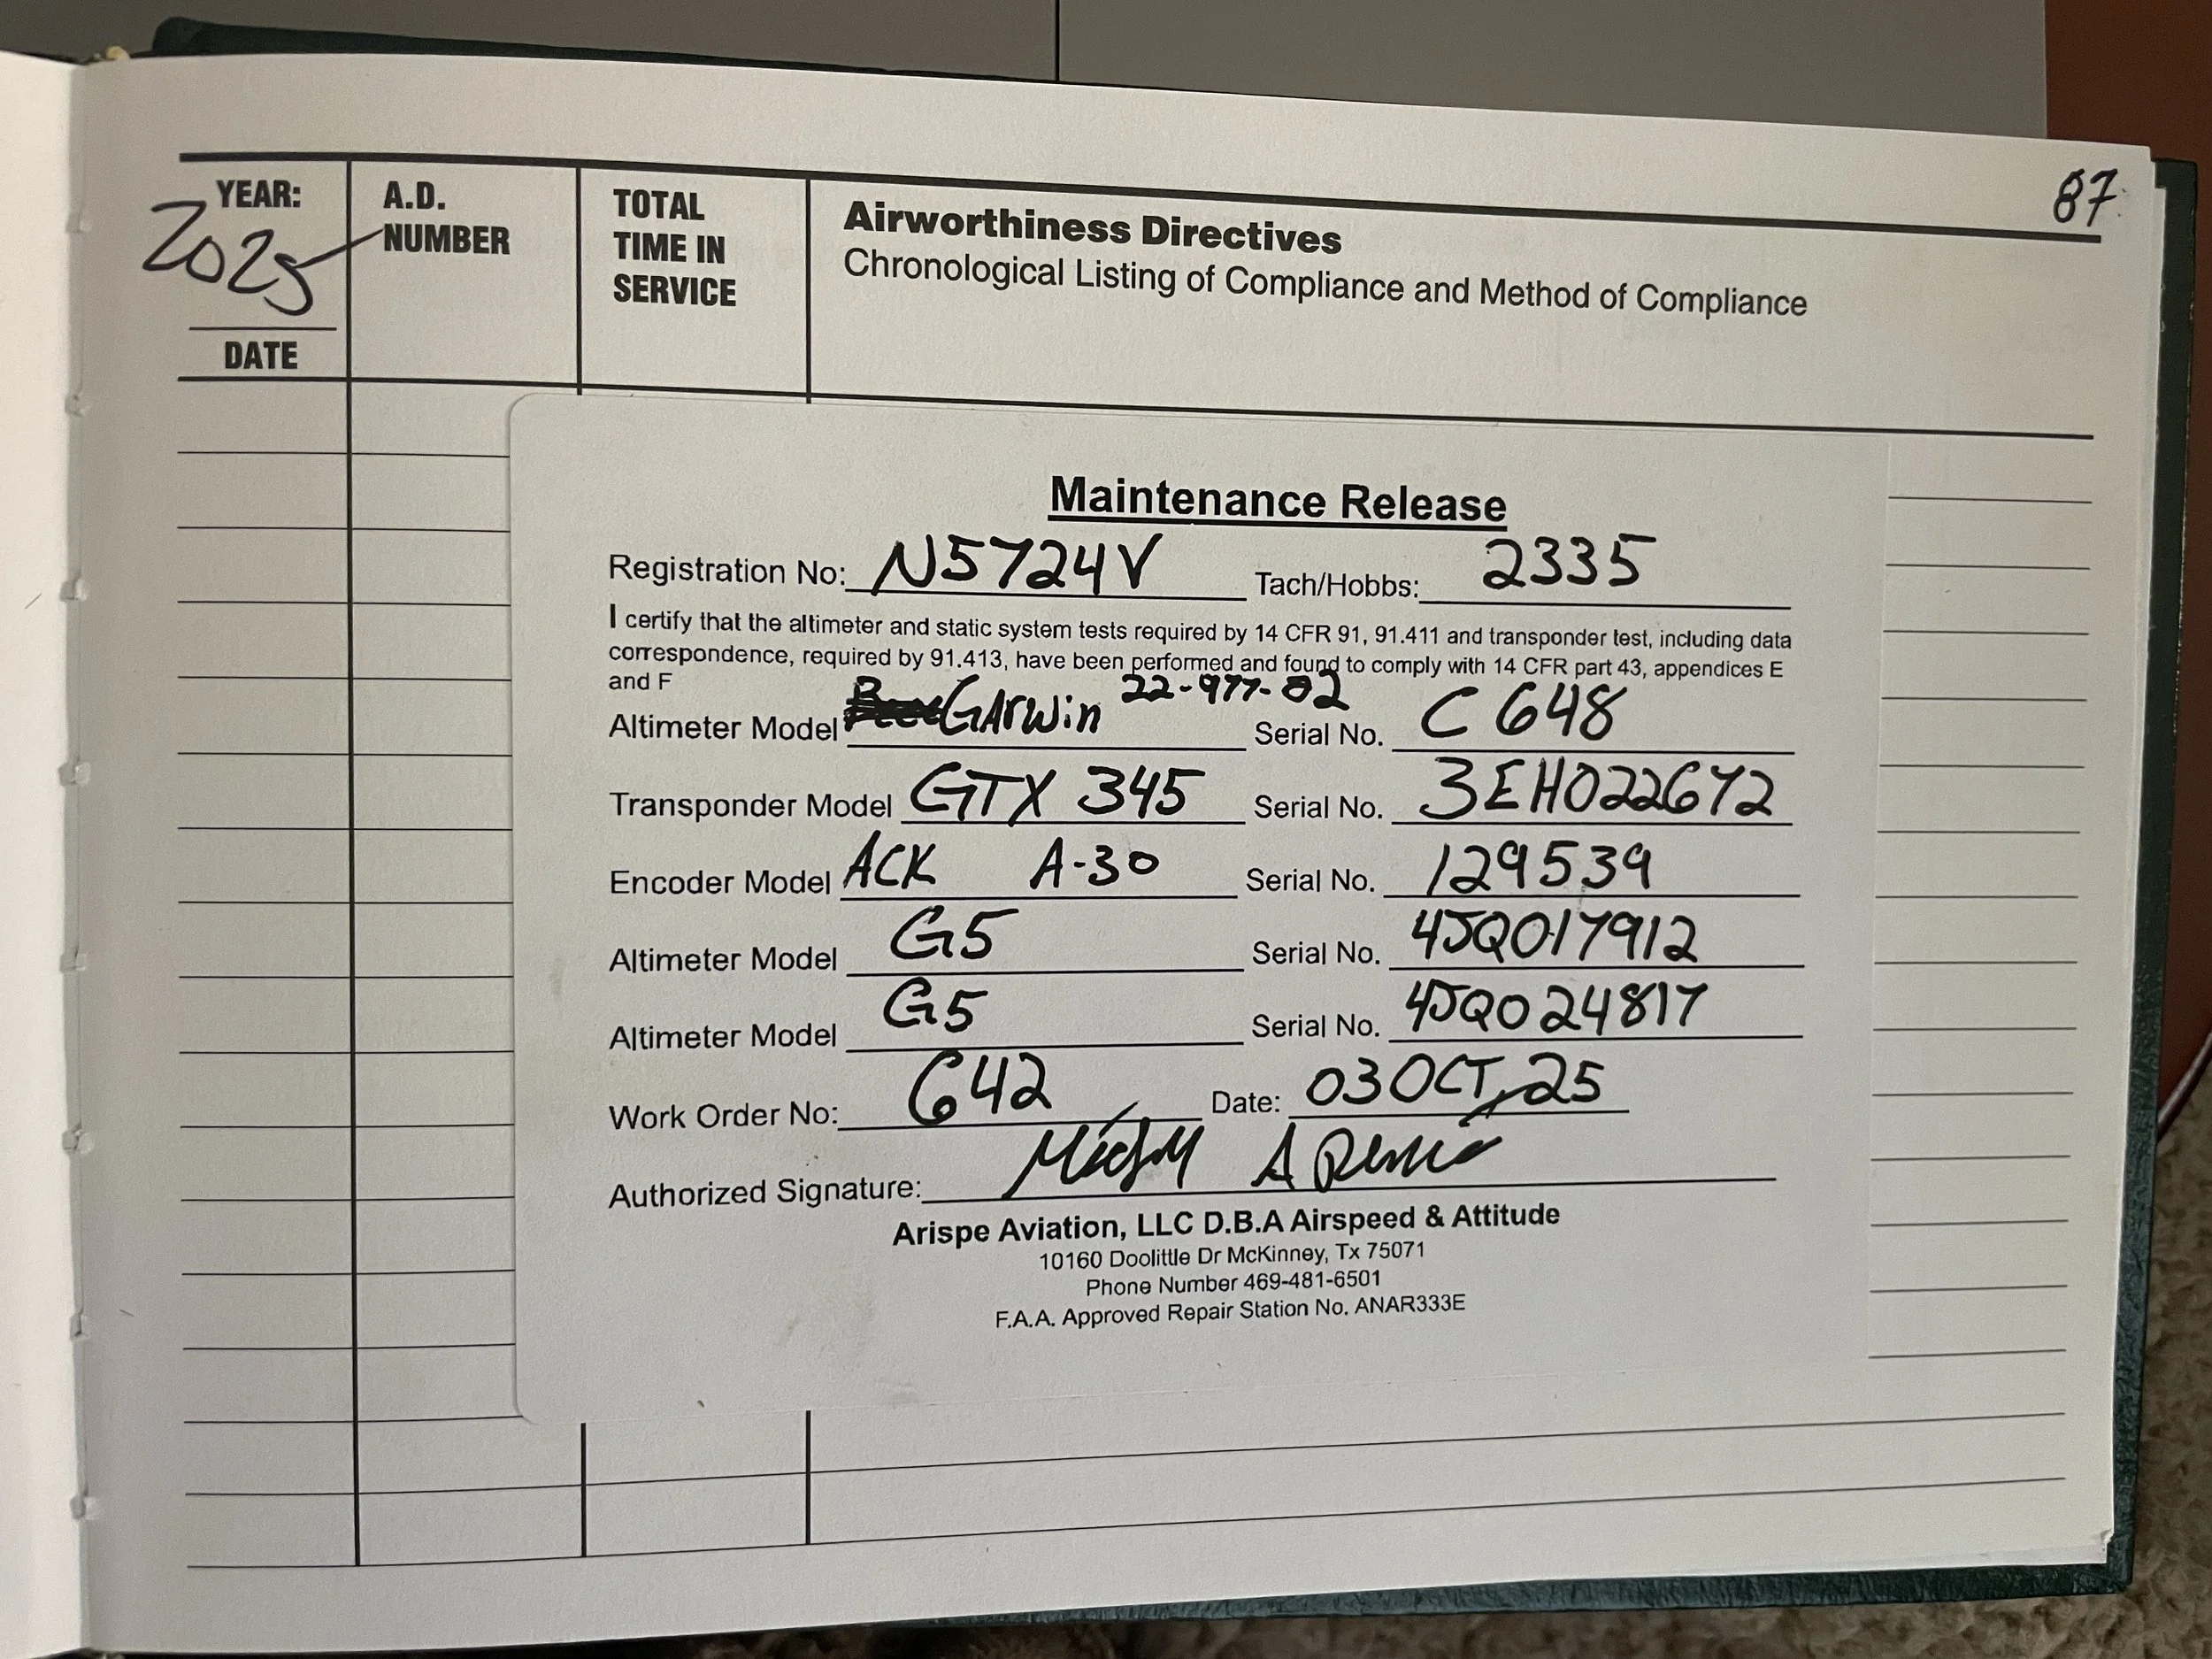 87
YEAR:
2025
DATE
A.D.
NUMBER
TOTAL
TIME IN
SERVICE
Airworthiness Directives
Chronological Listing of Compliance and Method of Compliance
Maintenance Release
Registration No: N5724V Tach/Hobbs: 2335
I certify that the altimeter and static system tests required by 14 CFR 91, 91.411 and transponder test, including data
correspondence, required by 91.413, have been performed and found to comply with 14 CFR part 43, appendices E
and F
Altimeter Model GArwin 22-977-02 Serial No. C648
Transponder Model GTX 345 Serial No. 3EH022672
Encoder Model ACK A-30 Serial No. 129539
Altimeter Model G5 Serial No. 4JQ017912
Altimeter Model G5 Serial No. 4JQ024817
Work Order No: 642 Date: 03 OCT, 25
Authorized Signature:
Arispe Aviation, LLC D.B.A Airspeed & Attitude
10160 Doolittle Dr McKinney, Tx 75071
Phone Number 469-481-6501
F.A.A. Approved Repair Station No. ANAR333E